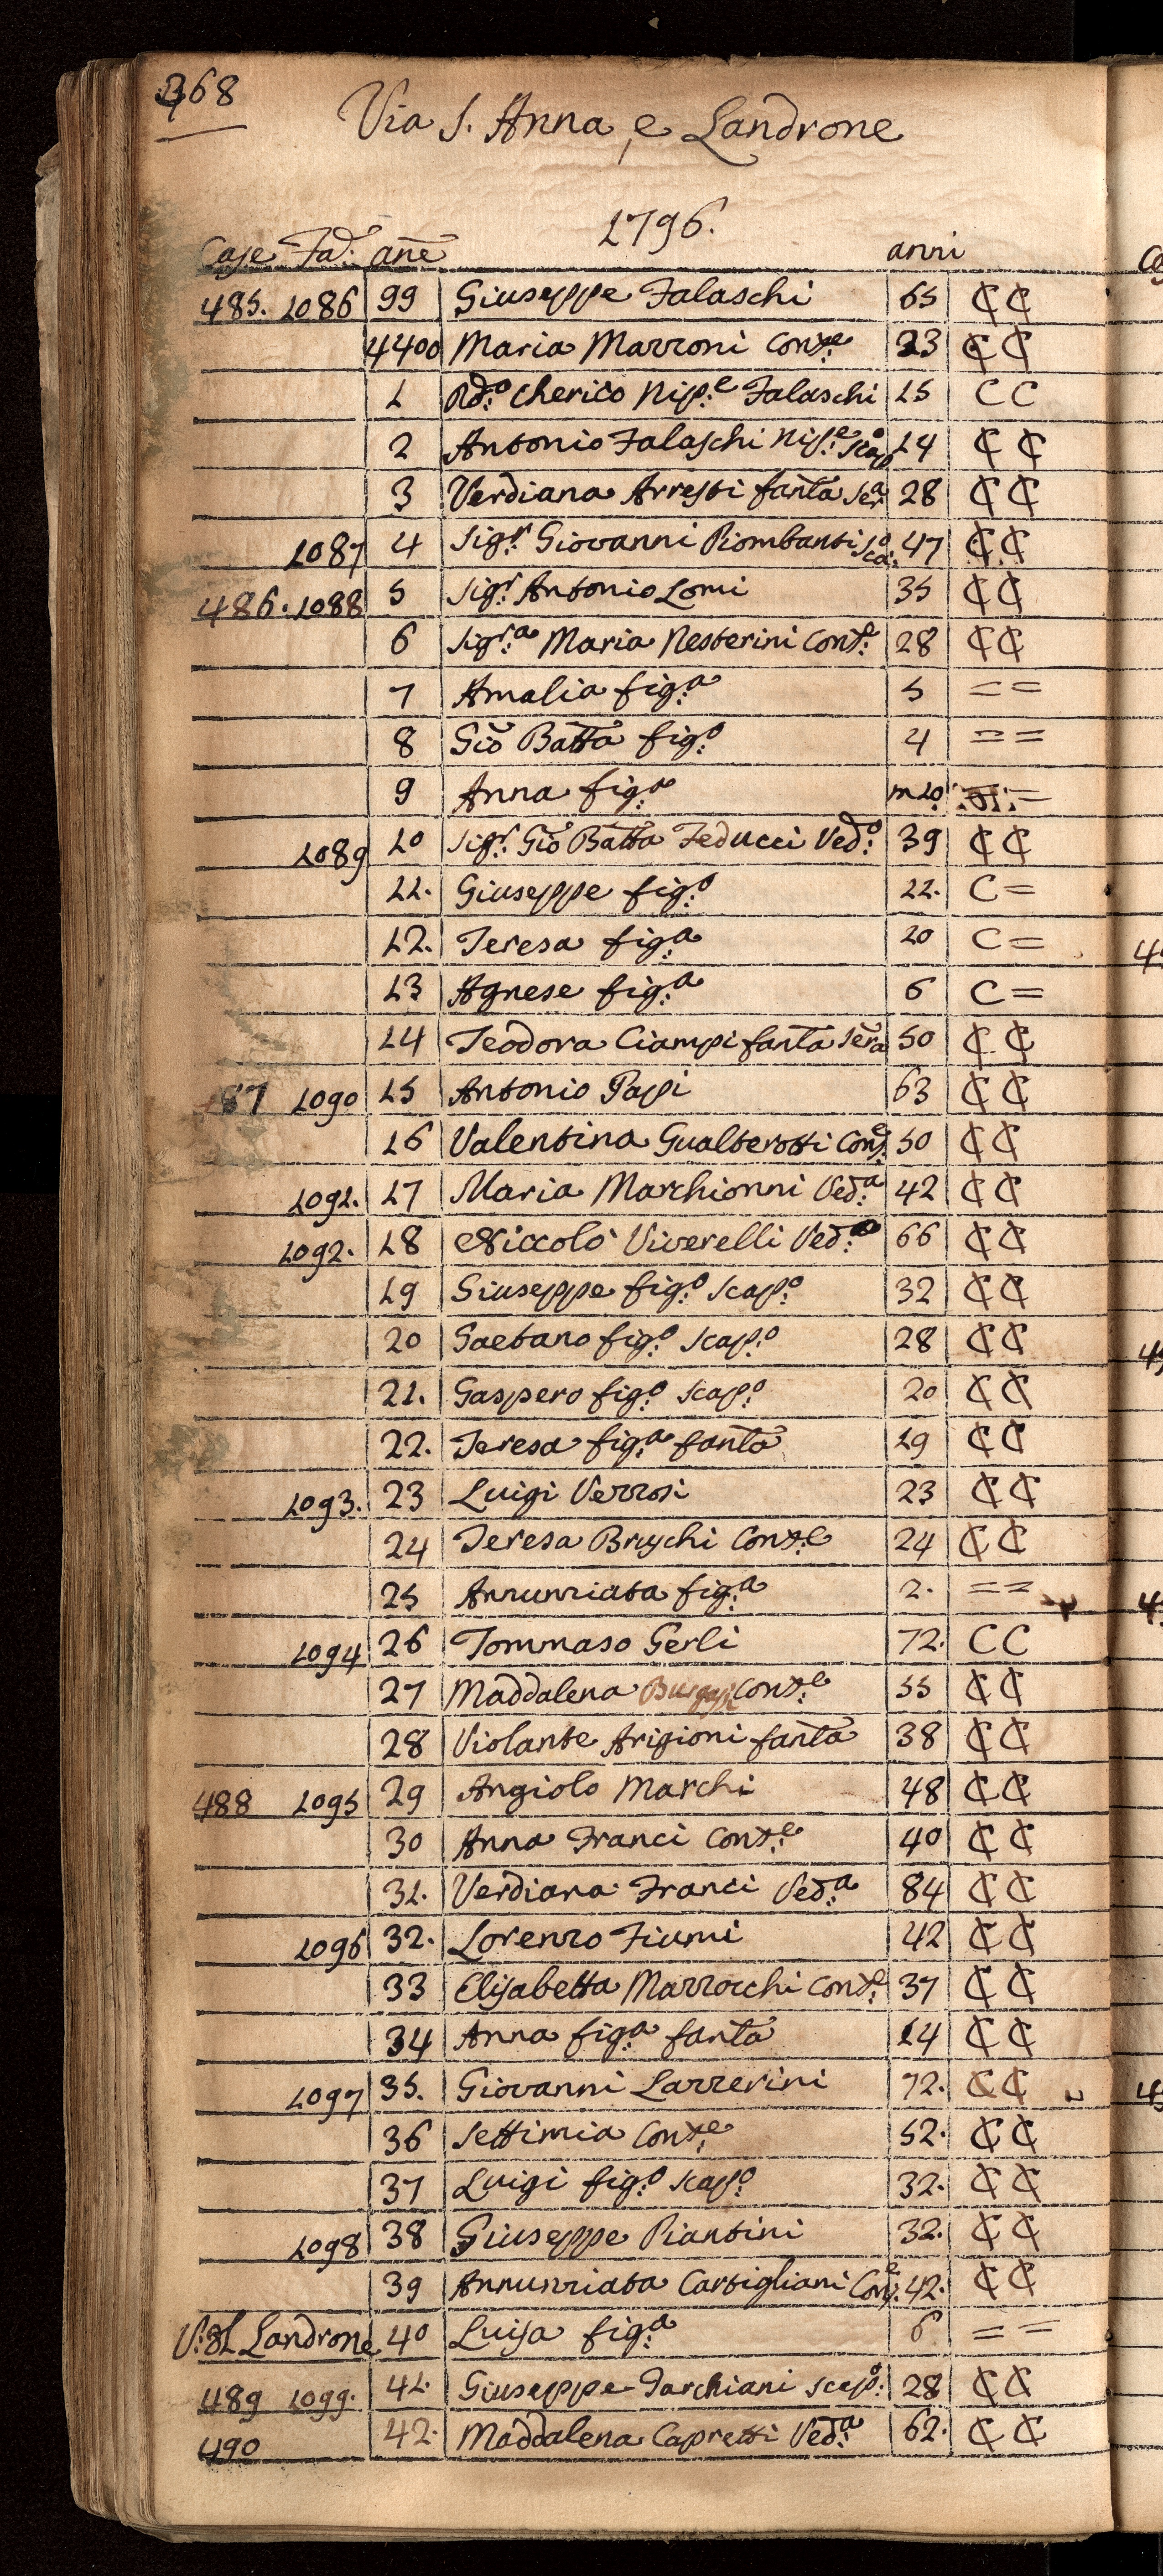 368
Via S. Anna, e Landrone
1796.
Case Fa: ane anni
485. 1086 99 Giuseppe Falaschi 65 ₵ ₵
4400 Maria Marroni Conte 23 ₵ ₵
1 Rdo: Cherico Nipe: Falaschi 15 C C
2 Antonio Falaschi Nipe: scapo 14 ₵ ₵
3 Verdiana Arresti fanta Sera 28 ₵ ₵
1087 4 Sigr: Giovanni Piombanti sca:o 47 ₵ ₵
486. 1088 5 Sigr: Antonio Lomi 35 ₵ ₵
6 Sigra: Maria Nesterini Conte: 28 ₵ ₵
7 Amalia figa: 5 = =
8 Gio Batta figo: 4 = =
9 Anna figa: m10. =
1089 10 Sigr: Gio Batta Feducci Vedo: 39 ₵ ₵
11. Giuseppe figo: 11. C =
12. Teresa figa: 10 C =
13 Agnese figa: 6 C =
14 Teodora Ciampi fanta Sera 50 ₵ ₵
87 1090 15 Antonio Papi 63 ₵ ₵
16 Valentina Gualterotti Cone: 50 ₵ ₵
1091. 17 Maria Marchionni Veda: 42 ₵ ₵
1092. 18 Niccolò Viverelli Vedo: 66 ₵ ₵
19 Giuseppe figo: scapo: 32 ₵ ₵
20 Gaetano figo: scapo: 28 ₵ ₵
21. Gaspero figo: scapo: 20 ₵ ₵
22. Teresa figa: fanta 19 ₵ ₵
1093. 23 Luigi Verrosi 23 ₵ ₵
24 Teresa Bruschi Conte: 24 ₵ ₵
25 Annunziata figa: 2. = =
1094 26 Tommaso Gerli 72. C C
27 Maddalena Conte: 55 ₵ ₵
28 Violante Arigioni fanta 38 ₵ ₵
488 1095 29 Angiolo Marchi 48 ₵ ₵
30 Anna Franci Conte: 40 ₵ ₵
31. Verdiana Franci Veda: 84 ₵ ₵
1096 32. Lorenzo Fiumi 42 ₵ ₵
33 Elisabetta Marrocchi Conte: 37 ₵ ₵
34 Anna figa: fanta 14 ₵ ₵
1097 35. Giovanni Lazzerini 72. ₵ ₵
36 Settimia Conte: 52. ₵ ₵
37 Luigi figo: scapo: 32. ₵ ₵
1098 38 Giuseppe Piantini 32. ₵ ₵
39 Annunziata Cartigliani Cone: 42. ₵ ₵
V: al Landrone 40 Luisa figa: 6 = =
489 1099. 41. Giuseppe Tarchiani scapo: 28 ₵ ₵
490 42. Maddalena Capretti Veda: 62. ₵ ₵